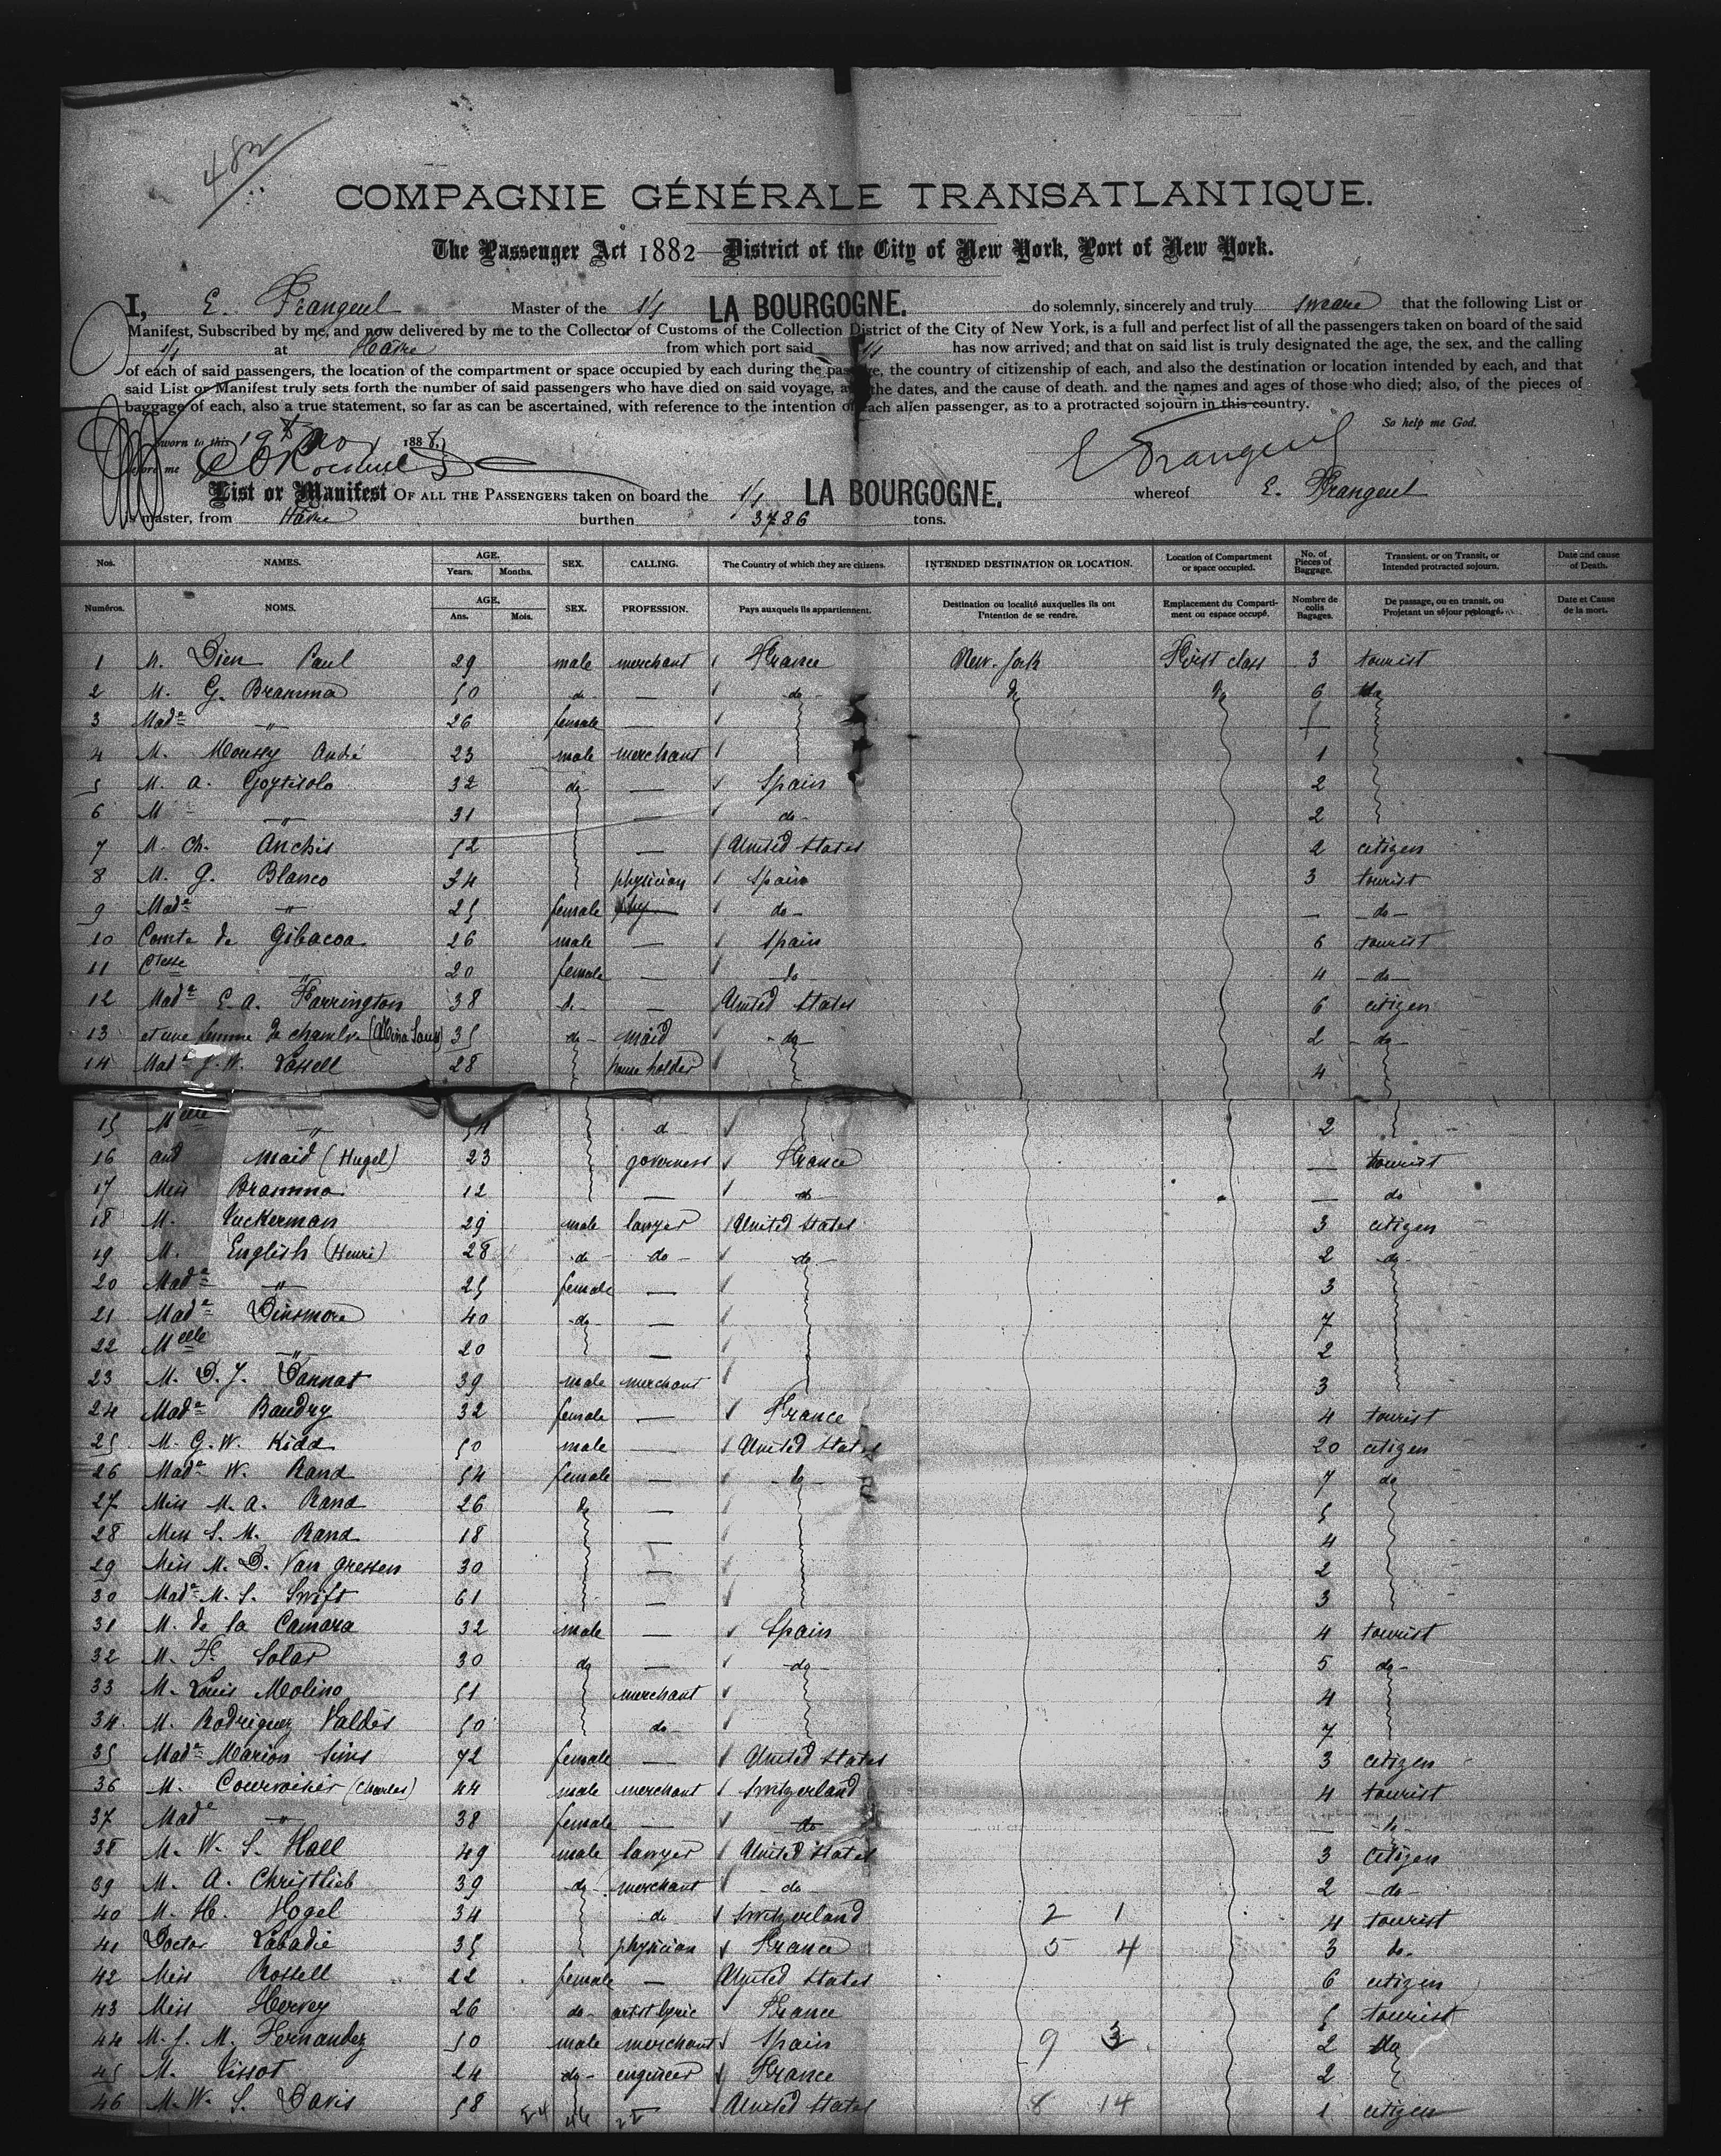 COMPAGNIE GÉNÉRALE TRANSATLANTIQUE.
The Passenger Act 1882—District of the City of New York, Port of New York.
I, E. Frangeul Master of the s/s LA BOURGOGNE. do solemnly, sincerely and truly sweare that the following List or
Manifest, Subscribed by me, and now delivered by me to the Collector of Customs of the Collection District of the City of New York, is a full and perfect list of all the passengers taken on board of the said
s/s at Havre from which port said s/s has now arrived; and that on said list is truly designated the age, the sex, and the calling
of each of said passengers, the location of the compartment or space occupied by each during the passage, the country of citizenship of each, and also the destination or location intended by each, and that
said List or Manifest truly sets forth the number of said passengers who have died on said voyage, and the dates, and the cause of death. and the names and ages of those who died; also, of the pieces of
baggage of each, also a true statement, so far as can be ascertained, with reference to the intention of each alien passenger, as to a protracted sojourn in this country.
So help me God.
Sworn to this 19th Nov 1888,
before me
E Frangeul
List or Manifest OF ALL THE PASSENGERS taken on board the s/s LA BOURGOGNE. whereof E. Frangeul
is master, from Havre burthen 3786 tons.
Nos. NAMES. AGE. Years. Months. SEX. CALLING. The Country of which they are citizens. INTENDED DESTINATION OR LOCATION. Location of Compartment or space occupied. No. of Pieces of Baggage. Transient, or on Transit, or Intended protracted sojourn. Date and cause of Death.
Numéros. NOMS. AGE. Ans. Mois. SEX. PROFESSION. Pays auxquels ils appartiennent. Destination ou localité auxquelles ils ont l'intention de se rendre. Emplacement du Compartiment ou espace occupé. Nombre de colis Bagages. De passage, ou en transit, ou Projetant un séjour prolongé. Date et Cause de la mort.
1 M. Dien Paul 29 male merchant France New-York First class 3 tourist
2 M. G. Bramma 50 do — do do do 6 do
3 Made " 26 female —
4 M. Moussy André 23 male merchant 1
5 M. A. Goytisolo 32 do — Spain 2
6 M " 31 — do 2
7 M. Ch. Anchis 52 — United States 2 citizen
8 M. G. Blanco 34 physician Spain 3 tourist
9 Made " 25 female do — do
10 Comte de Gibacoa 26 male — Spain 6 tourist
11 Ctesse " 20 female — do 4 do
12 Made E. A. Farrington 38 do — United States 6 citizen
13 et une femme de chambre 35 do maid do 2 do
14 Made J. W. 28 house holder 4
15 Melle " 54 d 2
16 and maid (Hugel) 23 governess France — tourist
17 Miss Bramma 12 — do — do
18 M. Tuckerman 29 male lawyer United States 3 citizen
19 M. English (Henri) 28 do do do 2 do
20 Made " 25 female — 3
21 Made Dinsmore 40 do — 7
22 Melle " 20 — 2
23 M. D. J. Dannat 39 male merchant 3
24 Made Baudry 32 female — France 4 tourist
25 M. G. W. Kidd 50 male — United States 20 citizen
26 Made W. Rand 54 female — do 7 do
27 Miss M. A. Rand 26 do — 5
28 Miss S. M. Rand 18 — 4
29 Miss M. D. Van Gressen 30 — 2
30 Made M. S. Swift 61 — 3
31 M. de la Camara 32 male — Spain 4 tourist
32 M. F. Solar 30 do — do 5 do
33 M. Louis Molino 51 merchant 4
34 M. Rodriguez Valdès 50 do 7
35 Made Marion Sims 72 female — United States 3 citizen
36 M. Courvoisier (Charles) 44 male merchant Switzerland 4 tourist
37 Made " 38 female — do — do
38 M. W. S. Hall 49 male lawyer United States 3 citizen
39 M. A. Christlieb 39 do merchant do 2 do
40 M. H. Hogel 34 do Switzerland 2 1 4 tourist
41 Doctor Labadie 35 physician France 5 4 3 do
42 Miss Rossell 22 female — United States 6 citizen
43 Miss Hervey 26 do artist lyric France 5 tourist
44 M. J. M. Fernandez 50 male merchant Spain 9 3 2 do
45 M. Tissot 24 do engineer France 2
46 M. W. S. Davis 58 — United States 8 14 1 citizen